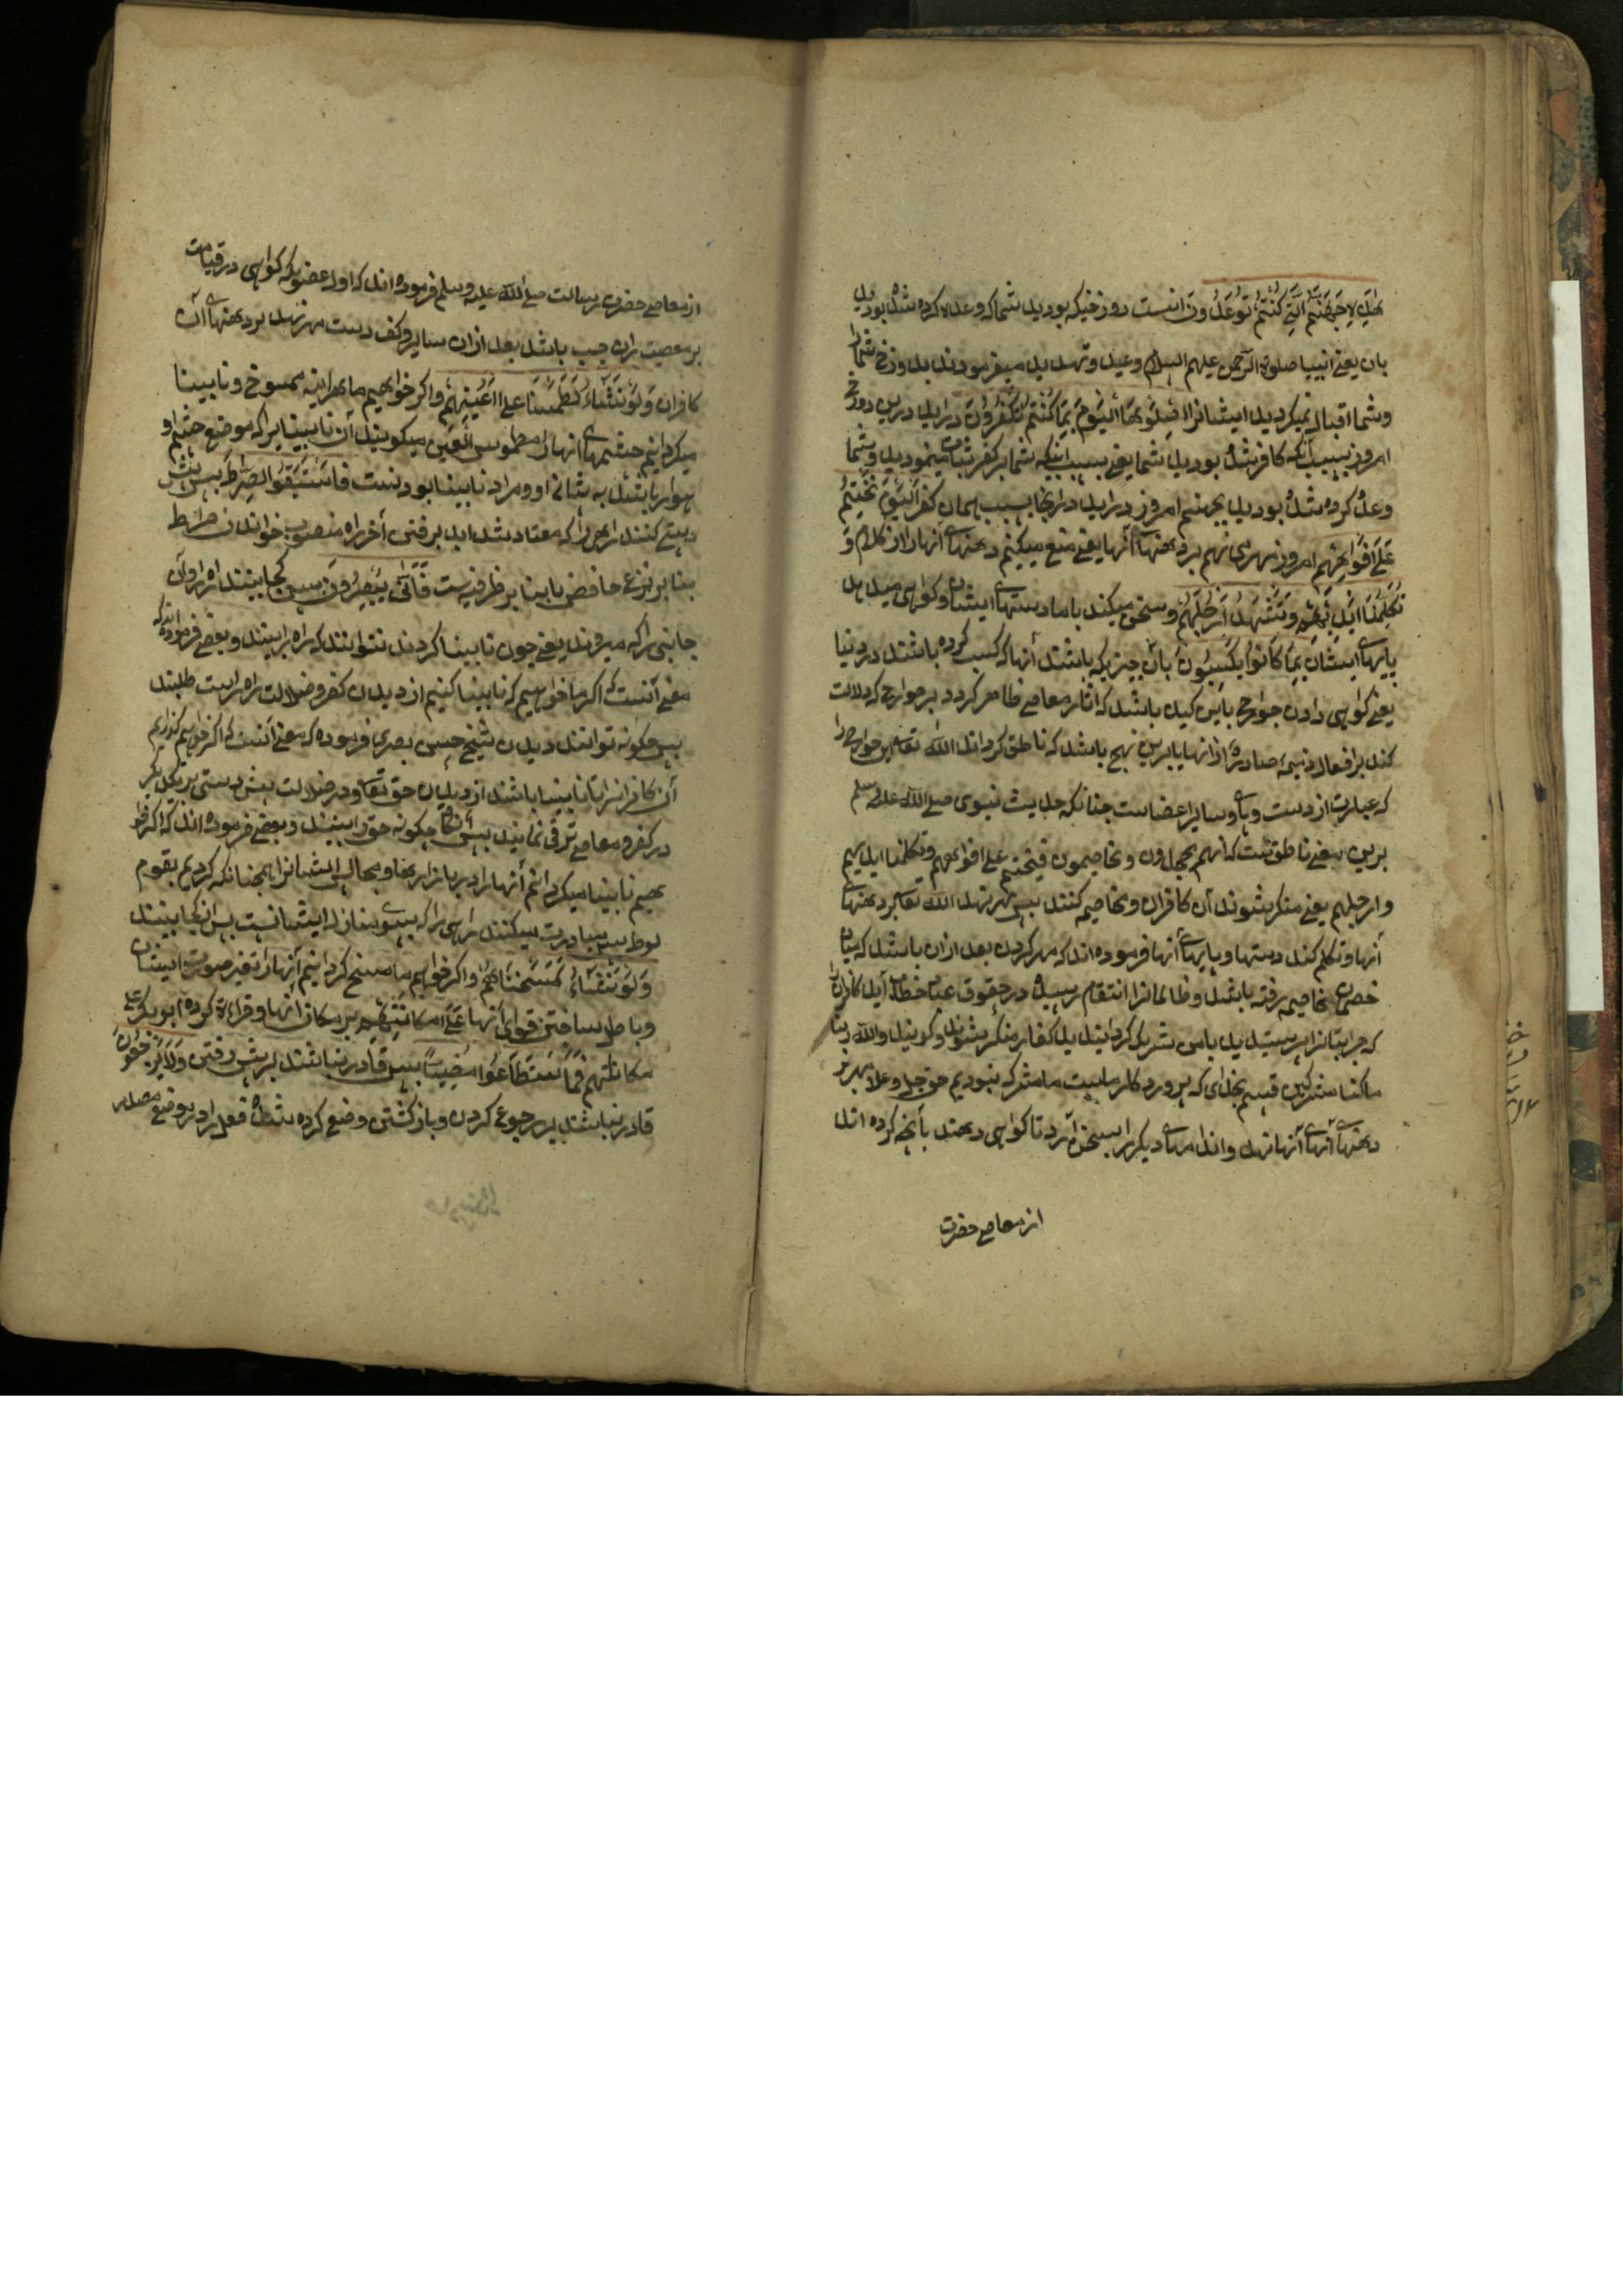 هٰذِهٖ جَهَنَّمُ الَّتِي كُنْتُمْ تُوعَدُونَ اینست دوزخیکه بودید شما که وعده کرده شده بودید
بان یعنے انبیا صلوة الرحمن علیهم السلام وعید وتهدید میفرمودند بدوزخ شمارا
وشما اقبال نمیکردید ایشانرا اِصْلَوْهَا الْيَوْمَ بِمَا كُنْتُمْ تَكْفُرُونَ درایید درین دوزخ
امروز بسبب آنکه کافر شده بودید شما یعنے بسبب اینکه شما بر کفر ثبات مینمودید وشما
وعده کرده شده بودید بجهنم امروز درایید درانجا بسبب همان کفر اَلْيَوْمَ نَخْتِمُ
عَلٰٓى اَفْوَاهِهِمْ امروز مهر می نهم بر دهنهاے آنها یعنے منع میکنم دهنهاے آنهارا از کلام وَ
تُكَلِّمُنَا اَيْدِيْهِمْ وَتَشْهَدُ اَرْجُلُهُمْ وسخن میکند باما دستهاے ایشان وکواهی میدهد
پایهاے ایشان بِمَا كَانُوا يَكْسِبُونَ بان چیزیکه باشند آنها که کسب کرده باشند در دنیا
یعنے کواهی دادن جوارح باین باشد که اثار معاصے ظاهر کردد بر جوارح که دلالت
کند بر افعال ذمیمهٔ صادره از انها یا برین نهج باشد که ناطق کرداند الله تعالے این جوارح را
که عبارت از دست وپاے وسایر اعضاست چنانکه حدیث نبوی صلے الله علیه وسلم
برین معنے ناطق است که انهم یجحدون ویخاصمون فیختم علے افواههم وتکلمنا ایدیهم
وارجلهم یعنے منکر شوند آن کافران ومخاصمه کنند پس مهر نهد الله تعالے بر دهنهاے
آنها وتکلم کند دستها وپایهاے آنها فرموده اند که مهر کردن بعد ازان باشد که میان
خصمان مخاصمه رفته باشد وظالمانرا انتقام رسیده در حقوق عباد خطاب آید کافرانرا
که چرا بتانرا پرستیدید بامن شریک کردانیدید کفار منکر شوند وکویند والله ربنا
ما کنا مشرکین قسم بخدای که پروردکار ماست ما مشرک نبودیم حق جل وعلا مهر بر
دهنهاے آنها نهد واندامهاے دیکر را بسخن آرد تا کواهی دهند بآنچه کرده اند
از معاصے حضرت
از معاصے حضرت رسالت صلے الله علیه وسلم فرموده اند که اول عضویکه کواهی در قیامت
بر معصیت ران چپ باشد بعد ازان سایر وکف دست مهر نهد بر دهنهاے آن
کافران وَلَوْ نَشَآءُ لَطَمَسْنَا عَلٰٓى اَعْيُنِهِمْ واکر خواهیم ما هراینه ممسوخ ونابینا
میکردانیم چشمهاے انهارا مطموس العین میکویند آن نابینایرا که موضع چشم او
هموار باشد به پیشانے او ومراد نابینا بودنست فَاسْتَبَقُوا الصِّرَاطَ پس پیش
دستے کنند راهی را که معتاد شده اند برفتن آخر راه منصوب خواندن صراط
بنا بر نزع خافض یا بنا بر ظرفیت فَاَنّٰى يُبْصِرُونَ پس کجا بینند راه را وآن
جانبی را که میروند یعنے چون نابینا کردند نتوانند که راه را بینند وبعضے فرموده اند که
معنے آنست که اکر ما خواهیم که نابینا کنیم از دیدن کفر وضلالت راه راست طلبند
پس چکونه توانند دیدن شیخ حسن بصری فرموده که معنے آنست که اکر خواهیم کذاریم
آن کافرانرا تا نابینا باشند از دیدن حق تعالے ودر ضلالت پیش دستی بر یکدیکر
در کفر ومعاصے ترقی نمایند پس آنکاه چکونه حق را بینند وبعضے فرموده اند که اکر خوا
هیم نابینا میکردانم آنهارا در بازارها ومحال ایشانرا همچنانکه کردیم بقوم
لوط پس مبادرت میکنند راهی را که بسوے منازل ایشانست پس از کجا بینند
وَلَوْ نَشَآءُ لَمَسَخْنٰهُمْ واکر خواهیم ما مسخ کردانیم آنهارا بتغیر صورت ایشان
وباطل ساختن قوای آنها عَلٰى مَكَانَتِهِمْ بر مکان انها وقراءة کرده ابوبکر علے
مکاناتهم فَمَا اسْتَطَاعُوا مُضِيًّا پس قادر نباشند بر پیش رفتن وَلَا يَرْجِعُونَ
قادر نباشند بر رجوع کردن وبازکشتن وضع کرده شده فعل را در موضع مصدر